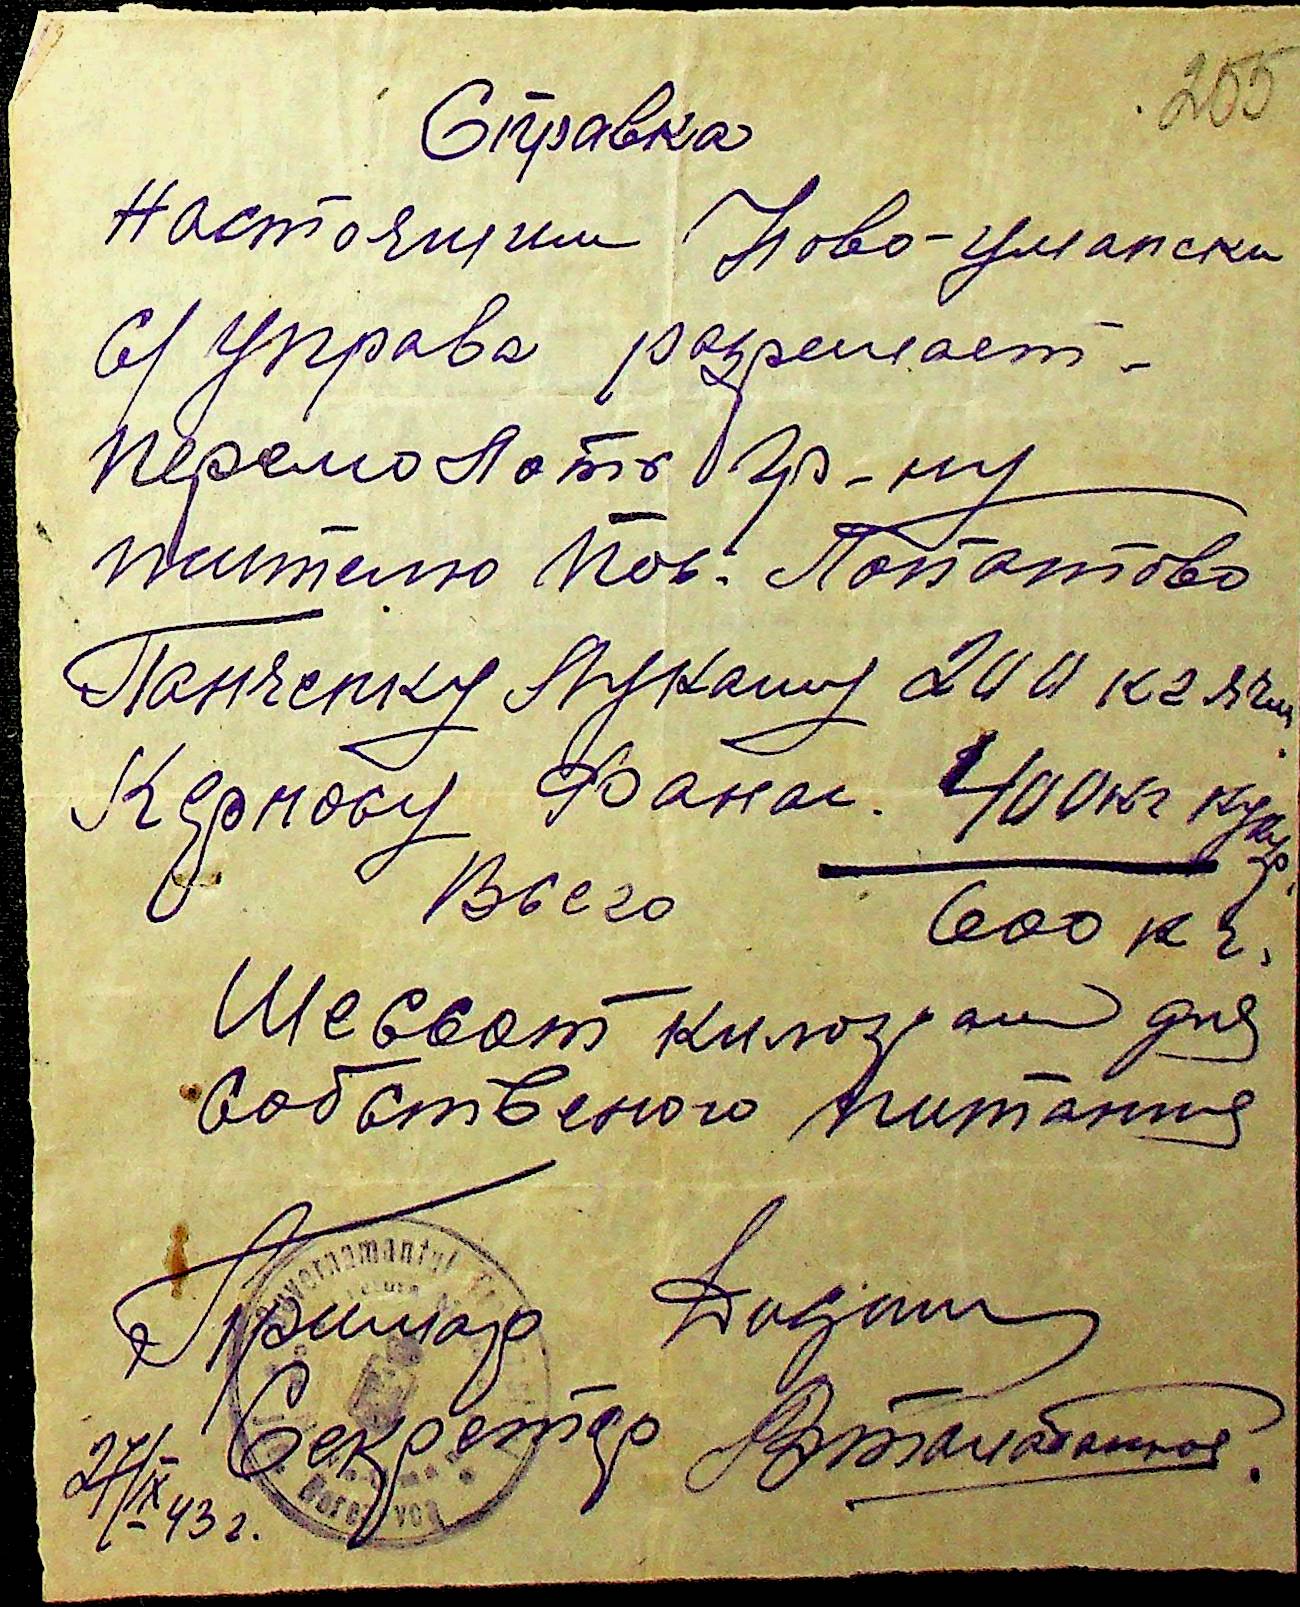 255
Справка
Настоящим Ново-Умански
С/Управа разрешает-
перемолоть гр-ну
жителю пос. Потатово
Панченку Лукашу 200 кг ячм.
Керносу Фанас. 400 кг кукур.
Всего 600 кг.
Шессот килограм для
собственого питания
Примар
Секретар
27/IX-43 г.
Guvernamantul